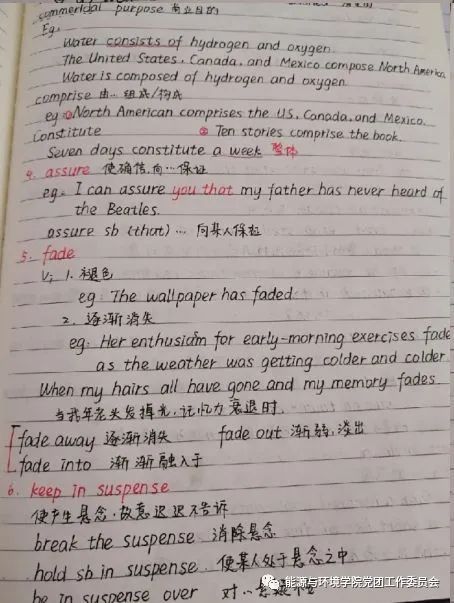 commericial purpose 商业目的
Eg:
Water consists of hydrogen and oxygen.
The United States, Canada, and Mexico compose North America
Water is composed of hydrogen and oxygen.
comprise 由…组成/构成
eg: ① North American comprises the US, Canada, and Mexico.
Constitute ② Ten stories comprise the book.
Seven days constitute a week 整体
4. assure 使确信,向…保证
eg: I can assure you that my father has never heard of
the Beatles.
assure sb (that)… 向某人保证
5. fade
V; 1. 褪色
eg: The wallpaper has faded.
2. 逐渐消失
eg: Her enthusiam for early-morning exercises fade
as the weather was getting colder and colder
When my hairs all have gone and my memory fades.
当我年老头发掉光,记忆力衰退时.
fade away 逐渐消失 fade out 渐弱,淡出
fade into 渐渐融入于
6. keep in suspense
使产生悬念,故意迟迟不告诉
break the suspense 消除悬念
hold sb in suspense 使某人处于悬念之中
be in suspense over 对…
能源与环境学院党团工作委员会